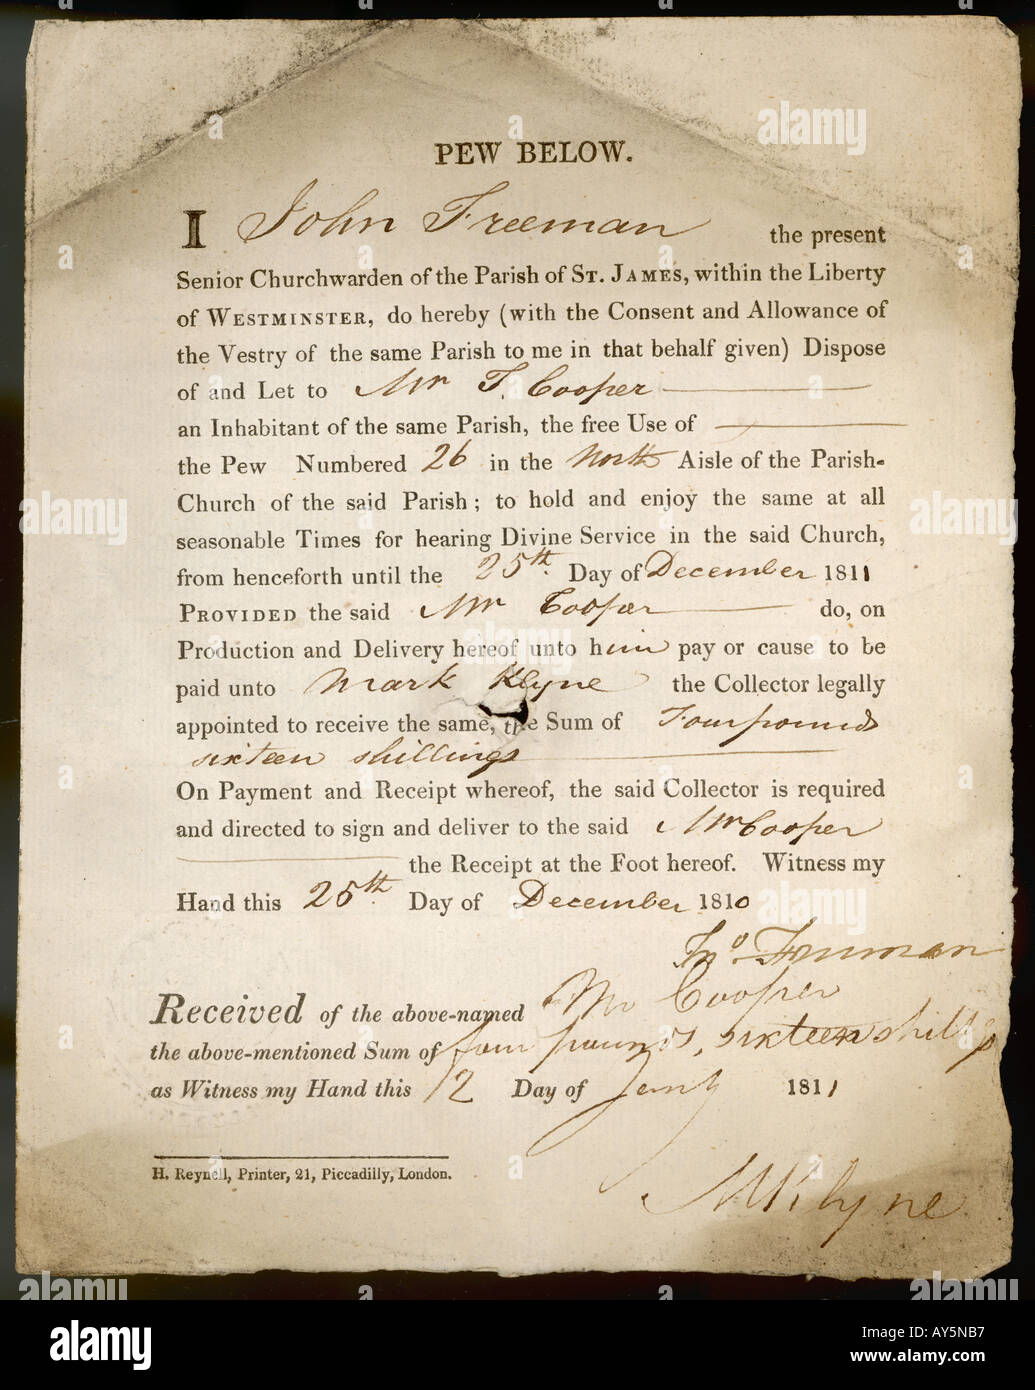 PEW BELOW.
I John Freeman the present
Senior Churchwarden of the Parish of ST. JAMES, within the Liberty
of WESTMINSTER, do hereby (with the Consent and Allowance of
the Vestry of the same Parish to me in that behalf given) Dispose
of and Let to Mr T. Cooper
an Inhabitant of the same Parish, the free Use of
the Pew Numbered 26 in the North Aisle of the Parish-
Church of the said Parish; to hold and enjoy the same at all
seasonable Times for hearing Divine Service in the said Church,
from henceforth until the 25th. Day of December 1811
PROVIDED the said Mr Cooper do, on
Production and Delivery hereof unto him pay or cause to be
paid unto Mark Klyne the Collector legally
appointed to receive the same, the Sum of Four pounds
sixteen shillings
On Payment and Receipt whereof, the said Collector is required
and directed to sign and deliver to the said Mr Cooper
the Receipt at the Foot hereof. Witness my
Hand this 25th. Day of December 1810
Jno. Freeman
Received of the above-named Mr Cooper
the above-mentioned Sum of four pounds, sixteen shillgs
as Witness my Hand this 12 Day of Jany 1811
H. Reynell, Printer, 21, Piccadilly, London.
M Klyne
alamy
Image ID: AY5NB7
www.alamy.com